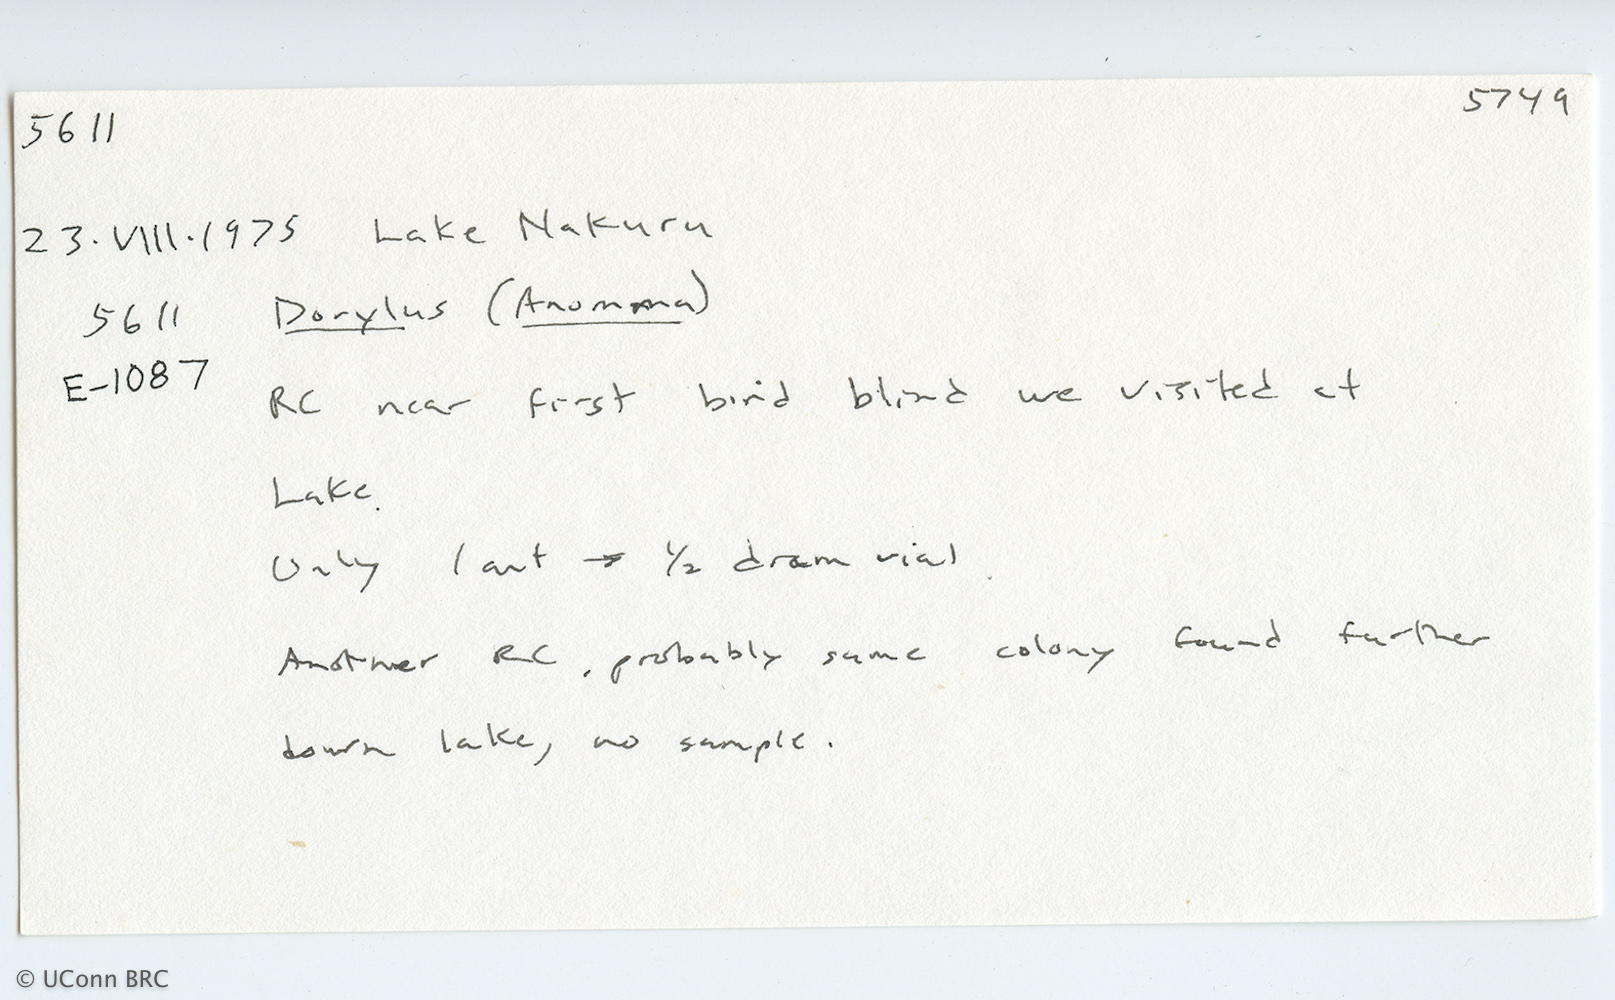 5611 5749
23.VIII.1975 Lake Nakuru
5611 Dorylus (Anomma)
E-1087
RC near first bird blind we visited at
Lake.
Only 1 ant → 1/2 dram vial.
Another RC, probably same colony found further
down lake, no sample.
© UConn BRC